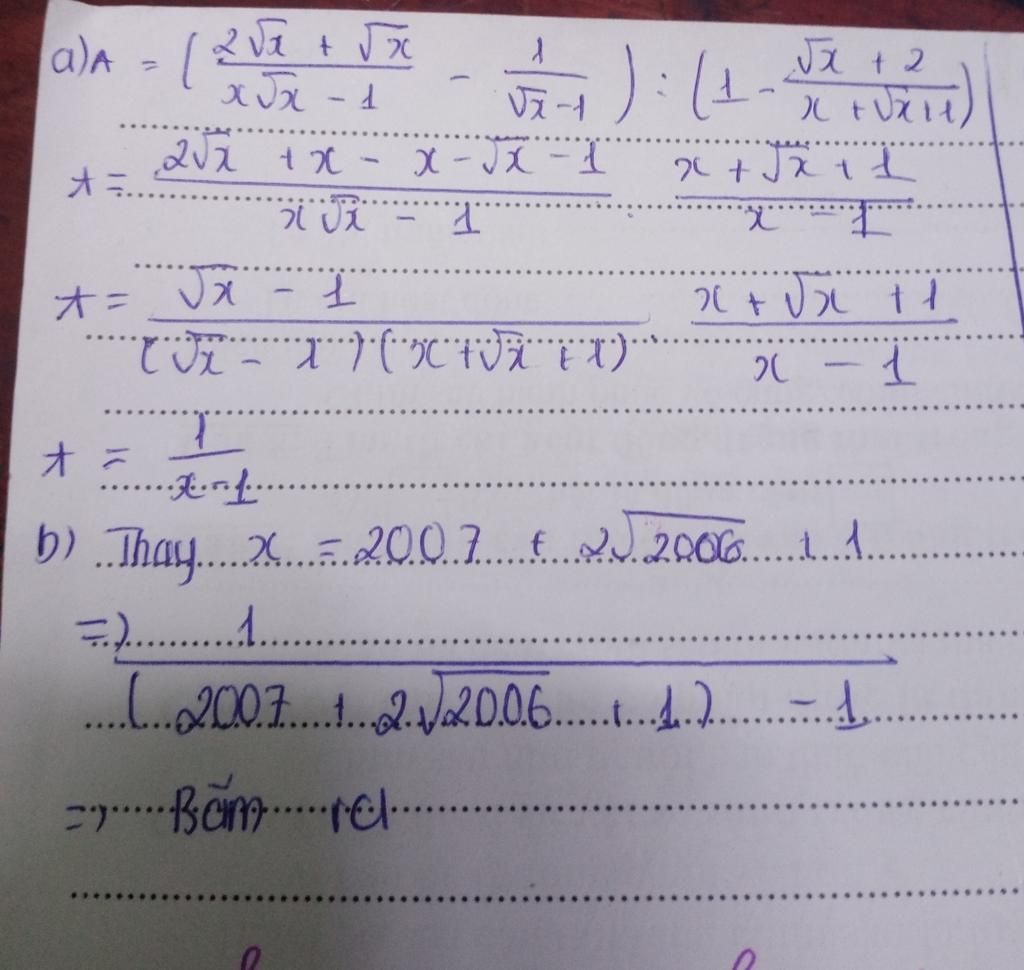 a) A = ( (2√x + √x)/(x√x - 1) - 1/(√x - 1) ) : (1 - (√x + 2)/(x + √x + 1))
A = (2√x + x - x - √x - 1)/(x√x - 1) . (x + √x + 1)/(x - 1)
A = (√x - 1)/((√x - 1)(x + √x + 1)) . (x + √x + 1)/(x - 1)
A = 1/(x - 1)
b) Thay x = 2007 + 2√2006 + 1
=> 1/((2007 + 2√2006 + 1) - 1)
=> Bấm ra